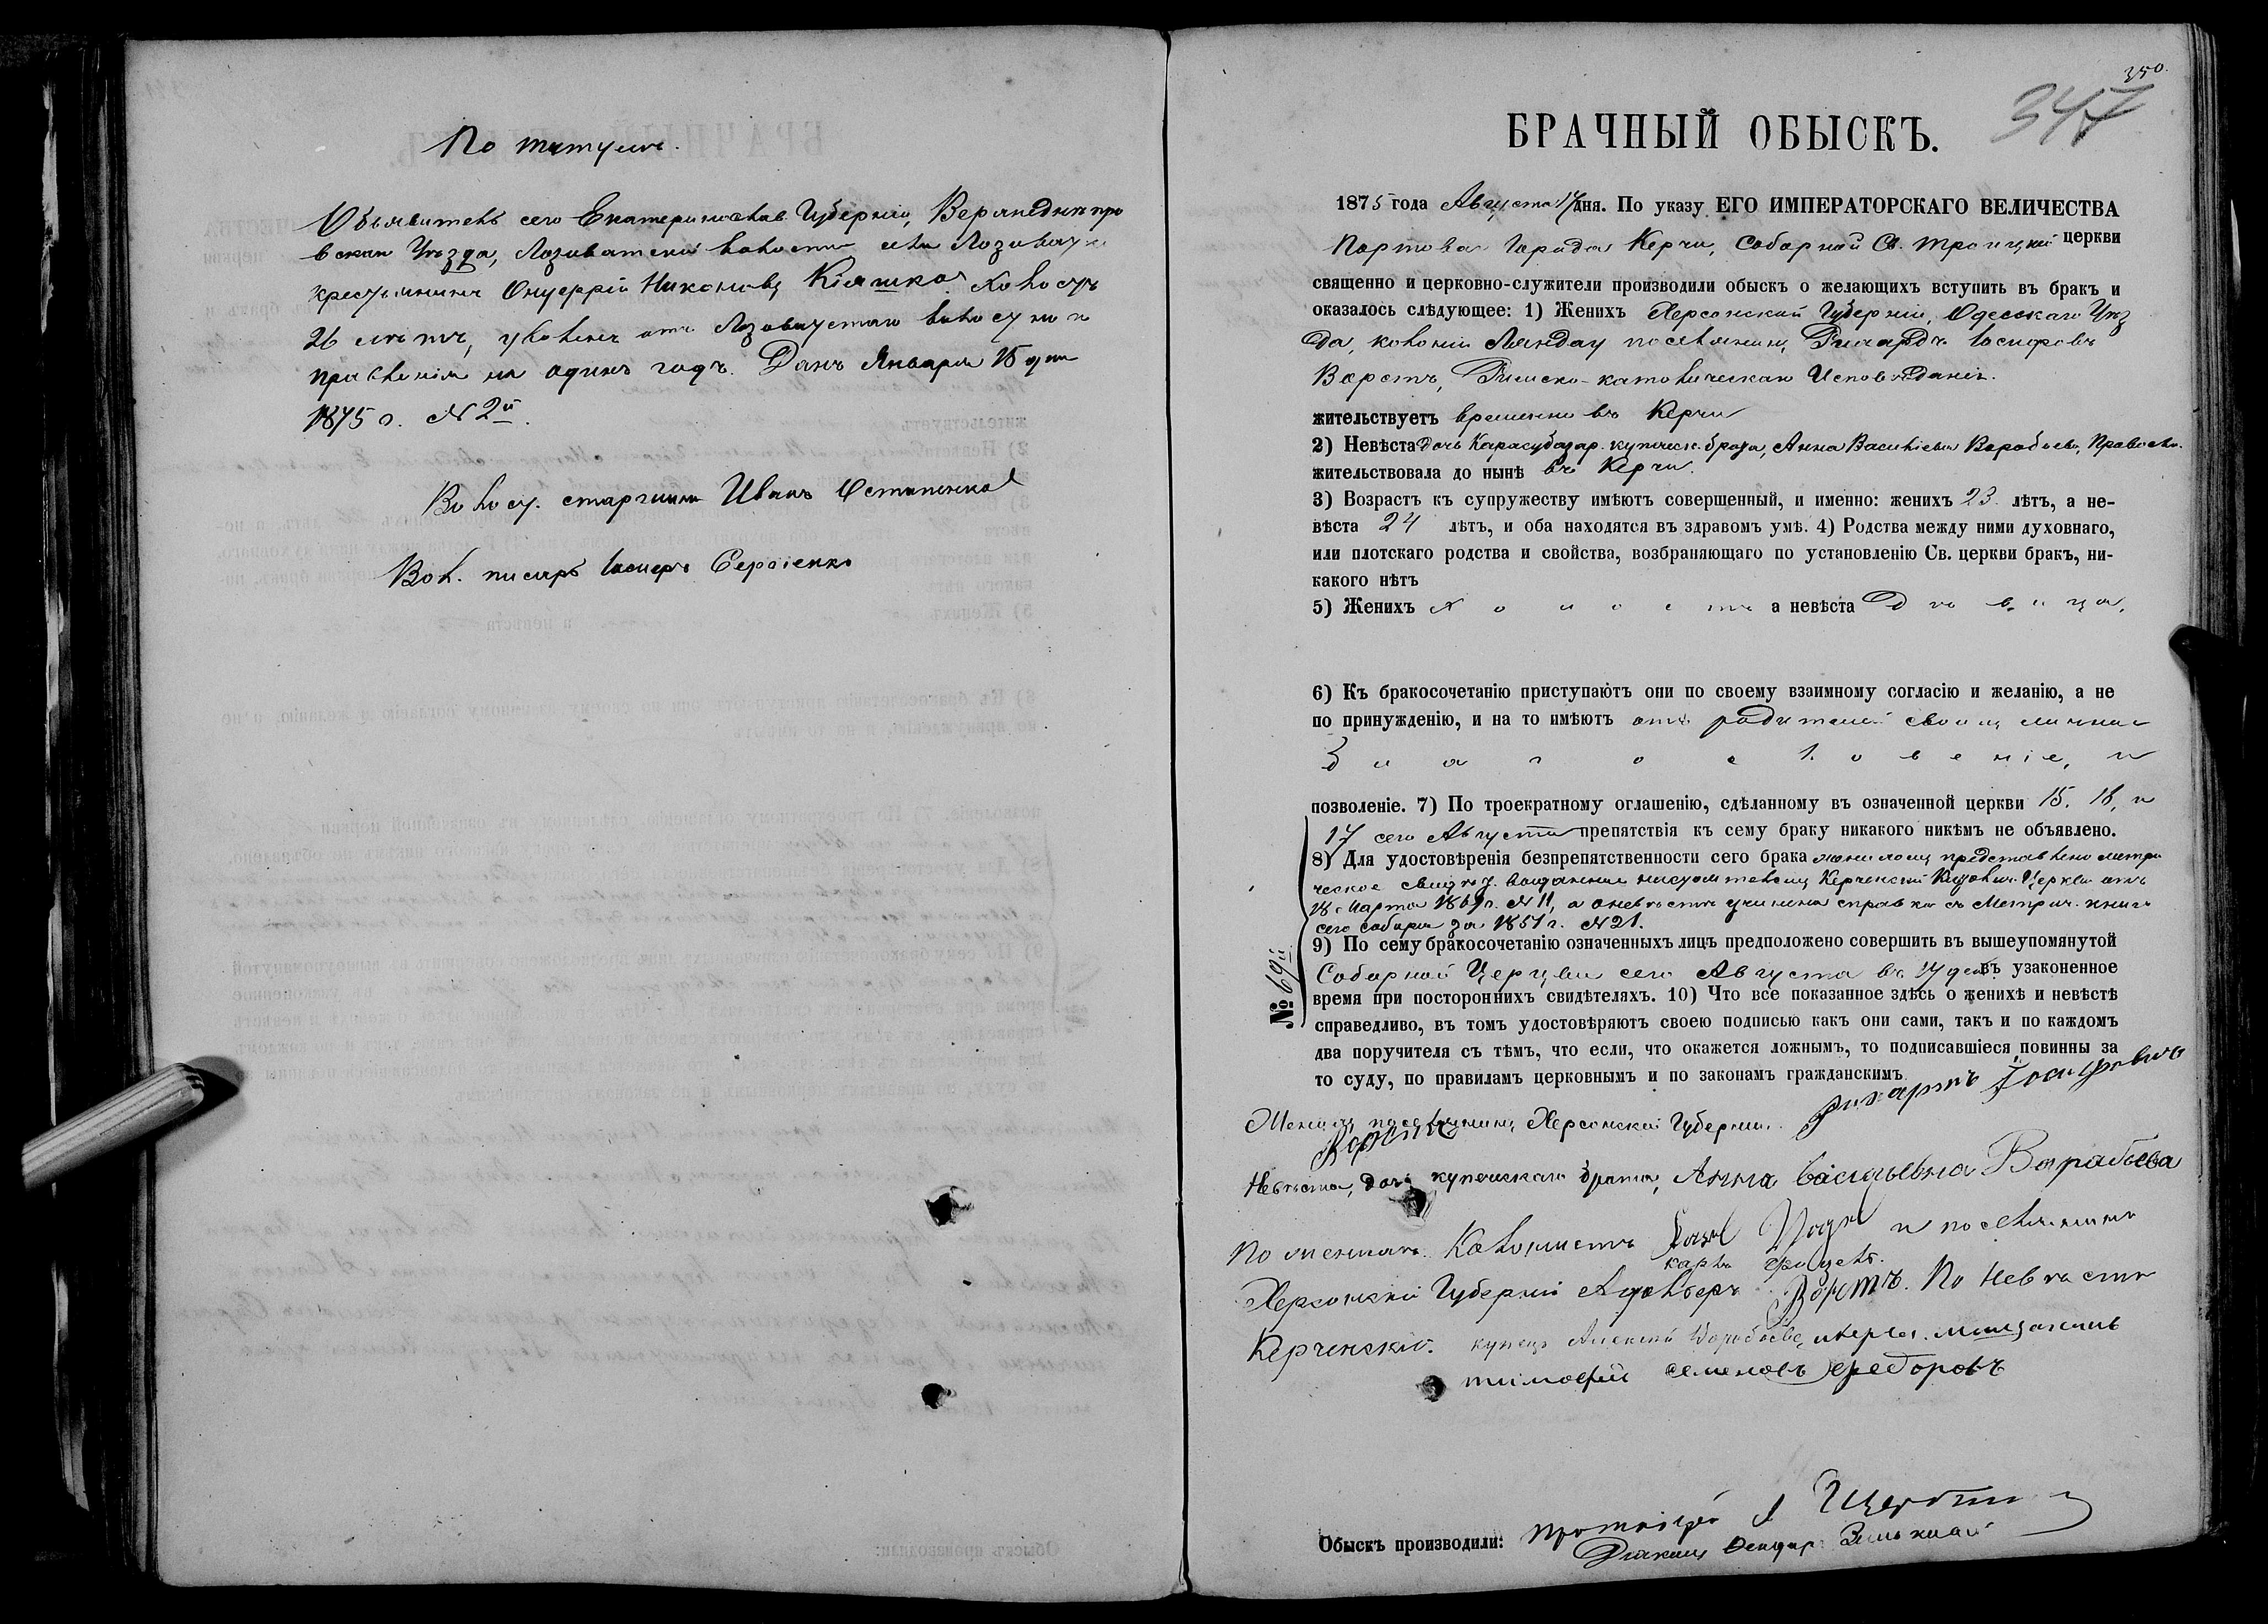 По титулѣ.
Объявитель сего Екатеринослав. Губерніи, Верхнеднѣпро
вскаго Уѣзда, Лозоватской волости села Лозоватки
крестьянинъ Онуфрій Никоновъ Кіяшко холостъ
26 лѣтъ, уволенъ отъ Лозоватскаго волостнаго
правленія на одинъ годъ. Данъ Января 15 дня
1875 г. № 2й.
Волост. старшина Иванъ Остапенко
Вол. писарь Іосифъ Сергіенко
350.
347
БРАЧНЫЙ ОБЫСКЪ.
1875 года Августа 17 дня. По указу ЕГО ИМПЕРАТОРСКАГО ВЕЛИЧЕСТВА
Портоваго Города Керчи, Соборной Св. Троицкой церкви
священно и церковно-служители производили обыскъ о желающихъ вступить въ бракъ и
оказалось слѣдующее: 1) Женихъ Херсонской Губерніи, Одесскаго Уѣз
да, колоніи Ландау поселянинъ, Рихардъ Іосифовъ
Ворстъ, Римско-католическаго Исповѣданія.
жительствуетъ временно въ Керчи
2) Невѣста дочь Карасубазар. купеческ. брата, Анна Васильева Воробьева, Правосл.
жительствовала до нынѣ въ Керчи.
3) Возрастъ къ супружеству имѣютъ совершенный, и именно: женихъ 23 лѣтъ, а не-
вѣста 24 лѣтъ, и оба находятся въ здравомъ умѣ. 4) Родства между ними духовнаго,
или плотскаго родства и свойства, возбраняющаго по установленію Св. церкви бракъ, ни-
какого нѣтъ
5) Женихъ холостъ а невѣста дѣвица.
6) Къ бракосочетанію приступаютъ они по своему взаимному согласію и желанію, а не
по принужденію, и на то имѣютъ отъ родителей своихъ личное
благословеніе, и
позволеніе. 7) По троекратному оглашенію, сдѣланному въ означенной церкви 15. 16, и
17 сего Августа препятствія къ сему браку никакого никѣмъ не объявлено.
8) Для удостовѣренія безпрепятственности сего брака женихомъ представлено метри
ческое свидѣт. выданное настоятелемъ Керченской Католич. Церкви отъ
18 Марта 1869 г. № 11, а о невѣстѣ учинена справка съ Метрич. книги
сего собора за 1851 г. № 21.
№ 69й
9) По сему бракосочетанію означенныхъ лицъ предположено совершить въ вышеупомянутой
Соборной Церкви сего Августа въ 17 день въ узаконенное
время при постороннихъ свидѣтеляхъ. 10) Что все показанное здѣсь о женихѣ и невѣстѣ
справедливо, въ томъ удостовѣряютъ своею подписью какъ они сами, такъ и по каждомъ
два поручителя съ тѣмъ, что если, что окажется ложнымъ, то подписавшіеся повинны за
то суду, по правиламъ церковнымъ и по законамъ гражданскимъ
Женихъ, поселянинъ Херсонской Губерніи Рихартъ Іосифовичъ
Ворстъ
Невѣста, дочь купеческаго брата, Анна Васильевна Варабьева
По женихѣ: Колонистъ и поселянинъ
Карлъ
Херсонской Губерніи Адольберъ Ворстъ. По Невѣстѣ
Керченскій купецъ Алексей Воробьевъ, и Керч. мещанинъ
тимофей семеновъ федоровъ
Обыскъ производили: Протоіерей
Діаконъ